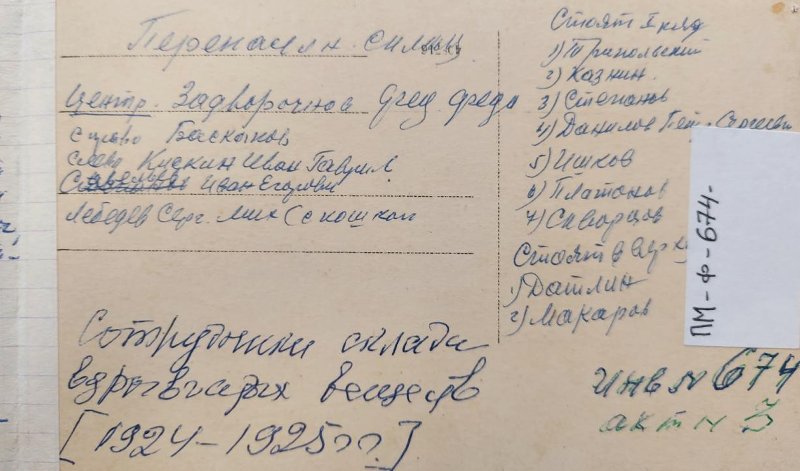 Центр. Задворочнов Фед. Федо
справа Баскаков
слева Кускин Иван Гаврил.
Иван Егорович
Лебедев Серг. Мих (с кошкой
Сотрудники склада
взрывчатых веществ
[1924-1925гг]
Стоят I ряд
1) Трипольский
2) Казнин.
3) Степанов
4) Данилов Петр Сергеевич
5) Ишков
6) Платонов
7) Скворцов
Стоят в верху
1) Датлин
2) Макаров
ПМ-Ф-674-
Инв № 674
акт № 3